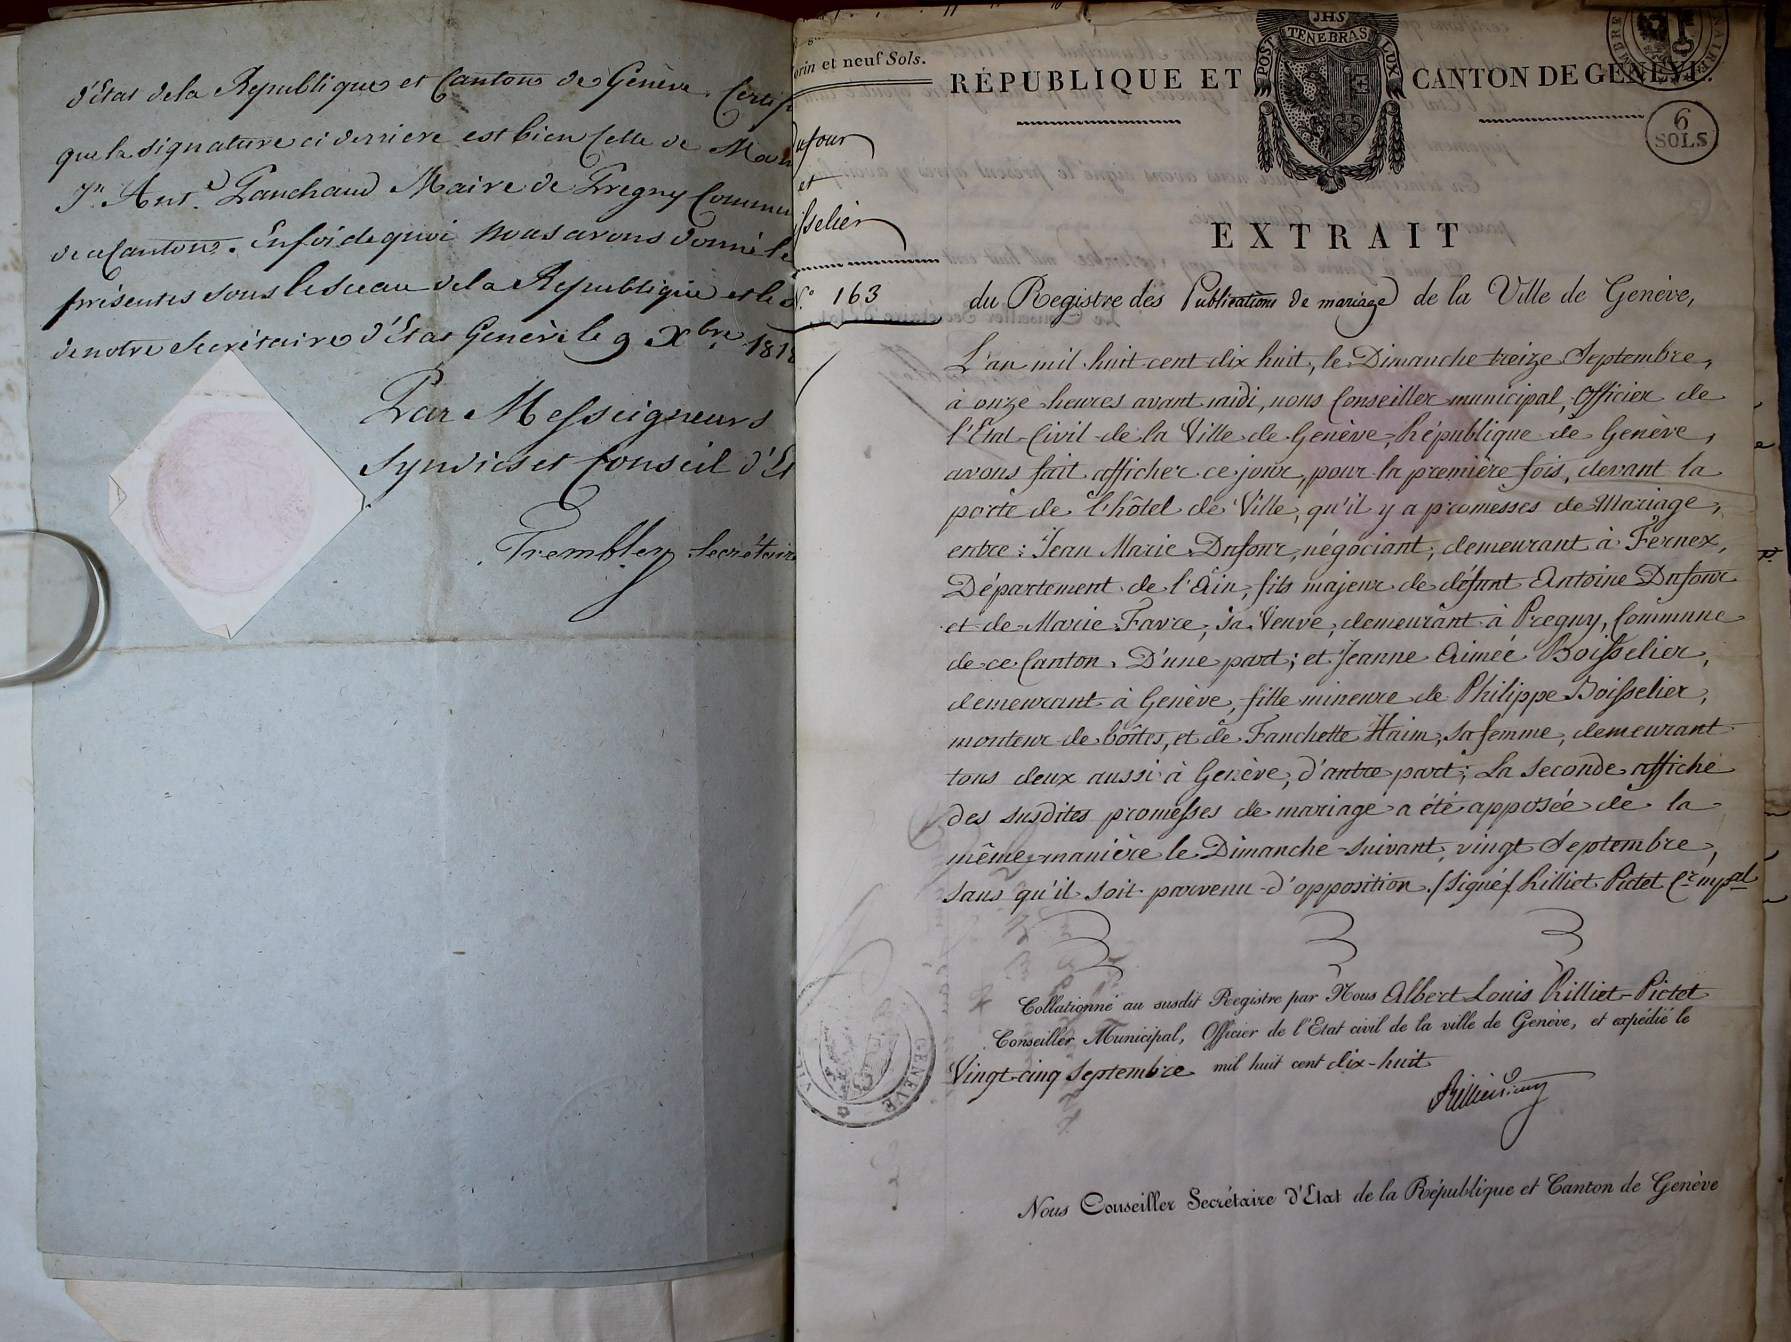 d'État de la République et Canton de Genève. Certif
que la signature ci derriere est bien celle de
Jn. Ant.e Panchaud Maire de Pregny Commu
de ce Canton. En foi de quoi nous avons donné le
présentes sous le sceau de la République et le
de notre Secrétaire d'État Genève le 9 Xbre 1818
Par Messeigneurs
Syndics et Conseil d'Et
Trembley Secrétaire
orin et neuf Sols.
ufour
et
isselier
N.o 163
JHS
POST TENEBRAS LUX
RÉPUBLIQUE ET CANTON DE GENÈVE.
6
SOLS
EXTRAIT
du Registre des Publications de mariage de la Ville de Genève,
L'an mil huit cent dix huit, le Dimanche treize Septembre,
à onze heures avant midi, nous Conseiller municipal, Officier de
l'Etat-Civil de la Ville de Genève, République de Genève,
avons fait afficher ce jour, pour la première fois, devant la
porte de l'hôtel de Ville, qu'il y a promesses de Mariage,
entre : Jean Marie Dufour, négociant, demeurant à Fernex,
Département de l'Ain, fils majeur de défunt Antoine Dufour
et de Marie Favre, sa Veuve, demeurant à Pregny, Commune
de ce Canton. D'une part ; et Jeanne Aimée Boisselier,
demeurant à Genève, fille mineure de Philippe Boisselier,
monteur de boîtes, et de Fanchette Haim, sa femme, demeurant
tous deux aussi à Genève, d'autre part ; La seconde affiche
des susdites promesses de mariage a été apposée de la
même manière le Dimanche suivant, vingt Septembre,
sans qu'il soit parvenu d'opposition. (signé) Rilliet Pictet Cer mpal
Collationné au susdit Registre par Nous Albert Louis Rilliet-Pictet
Conseiller Municipal, Officier de l'Etat civil de la ville de Genève, et expédié le
Vingt-cinq Septembre mil huit cent dix-huit
GENEVE
Nous Conseiller Secrétaire d'Etat de la République et Canton de Genève